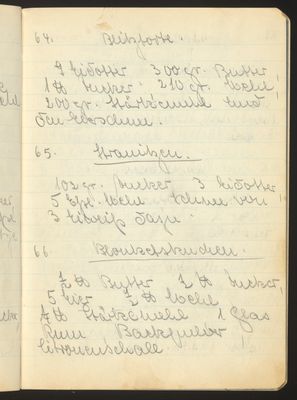 64. Blitztorte.
9 Eidotter 300 gr. Butter
1 ℔ Zucker 210 gr. Mehl
200 gr. Stärkemehl und
den Schnee
65. Stanitzen.
102 gr. Zucker 3 Eidotter
5 Eßl. Mehl Schnee von
3 Eiweiß dazu.
66.
½ ℔ Butter ½ ℔ Zucker,
5 Eier ½ ℔ Mehl
¼ ℔ Stärkemehl 1 Glas
Rum, Backpulver
Citronenschale.